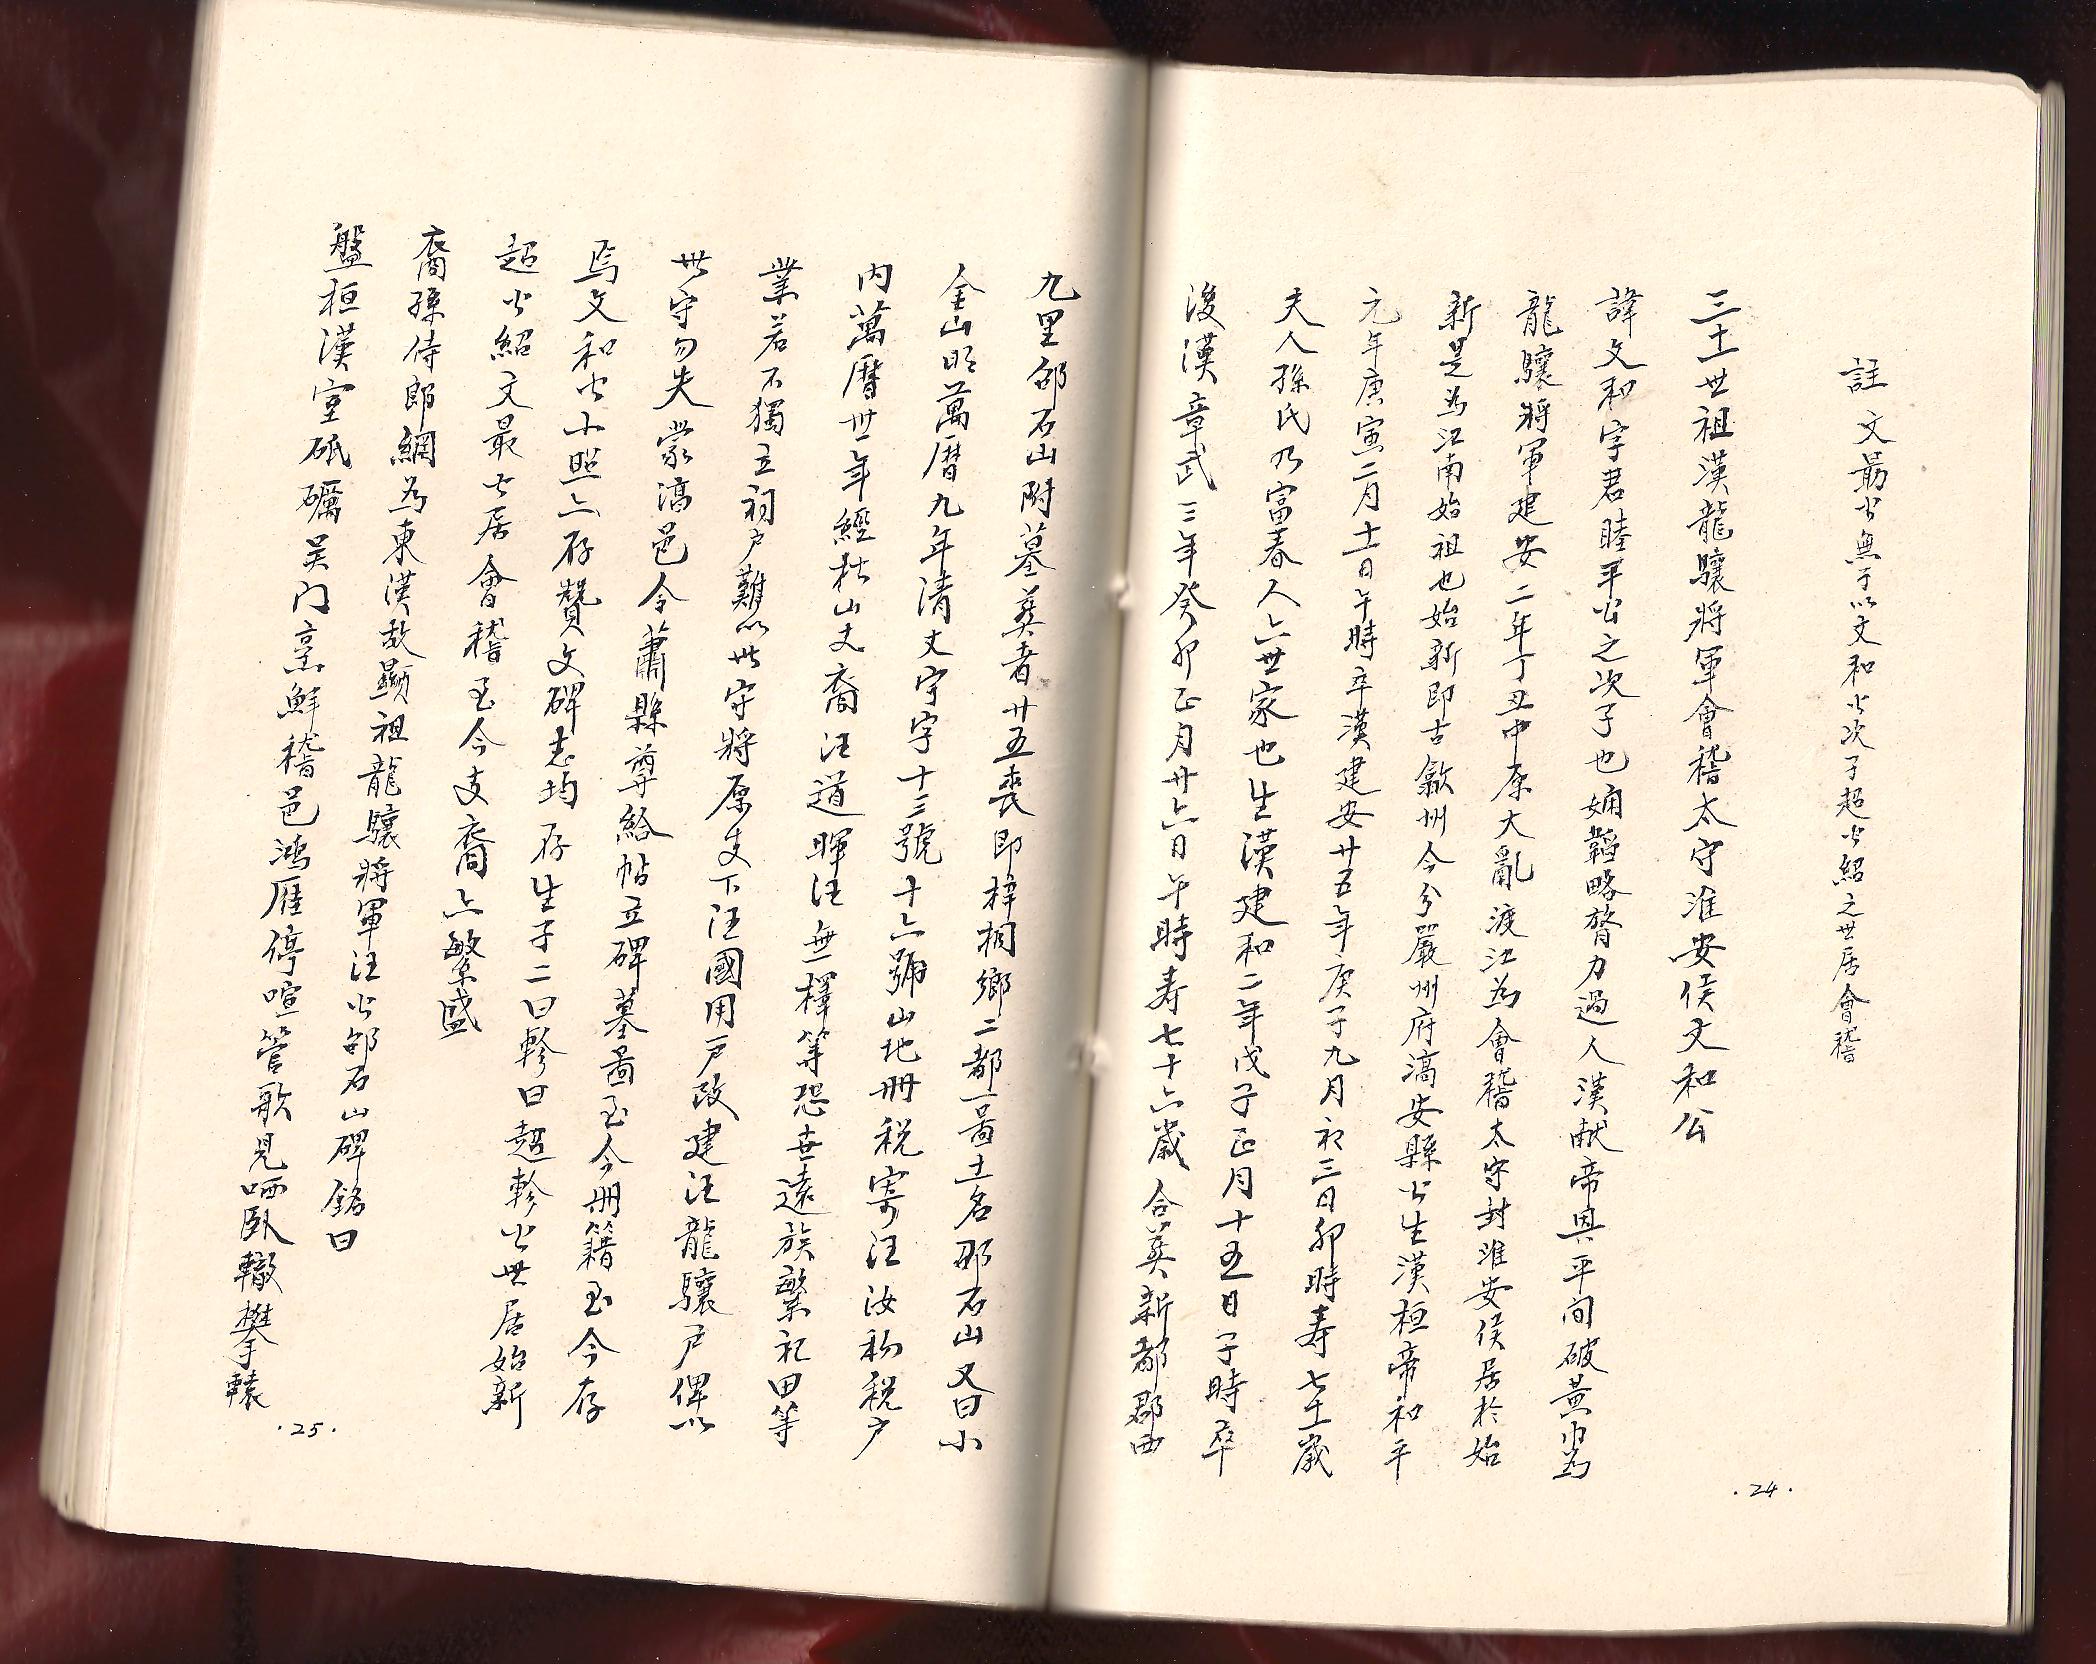 註 文勗公無子以文和公次子超公紹之世居會稽
三十一世祖漢龍驤將軍會稽太守淮安侯文和公
諱文和字君睦平公之次子也嫺韜略膂力過人漢献帝興平间破黄巾為
龍驤將軍建安二年丁丑中原大亂渡江為會稽太守封淮安侯居於始
新是為江南始祖也始新即古歙州今分嚴州府淳安縣公生漢桓帝和平
元年庚寅二月十一日午時卒漢建安廿五年庚子九月初三日卯時寿七十一歲
夫人孫氏乃富春人亠世家也生漢建和二年戊子正月十五日子時卒
後漢章武三年癸卯正月廿六日午時寿七十六歲 合葬新都郡西
·24·
九里邵石山附墓葬者廿五喪即梓桐鄉二都一啚土名邵石山又曰小
金山明萬曆九年清丈字字十三號十六號山地册税寄汪汝初税户
内萬曆卅一年經松山丈裔汪道暉汪無擇等恐世遠族繁祀田等
業若不獨立祠户難以世守將原支下汪國用户改建汪龍驤户俾以
世守勿失蒙淳邑令蕭縣尊給帖立碑墓啚至今册籍至今存
焉文和公小照亠存贊文碑志均存生子二曰軫曰超軫公世居始新
超公紹文勗公居會稽至今支裔亠繁盛
裔孫侍郎綱為東漢故顯祖龍驤將軍汪公邵石山碑銘曰
盤桓漢室砥礪吴门烹鮮稽邑鴻雁停喧管歌見哂臥轍攀轅
·25·